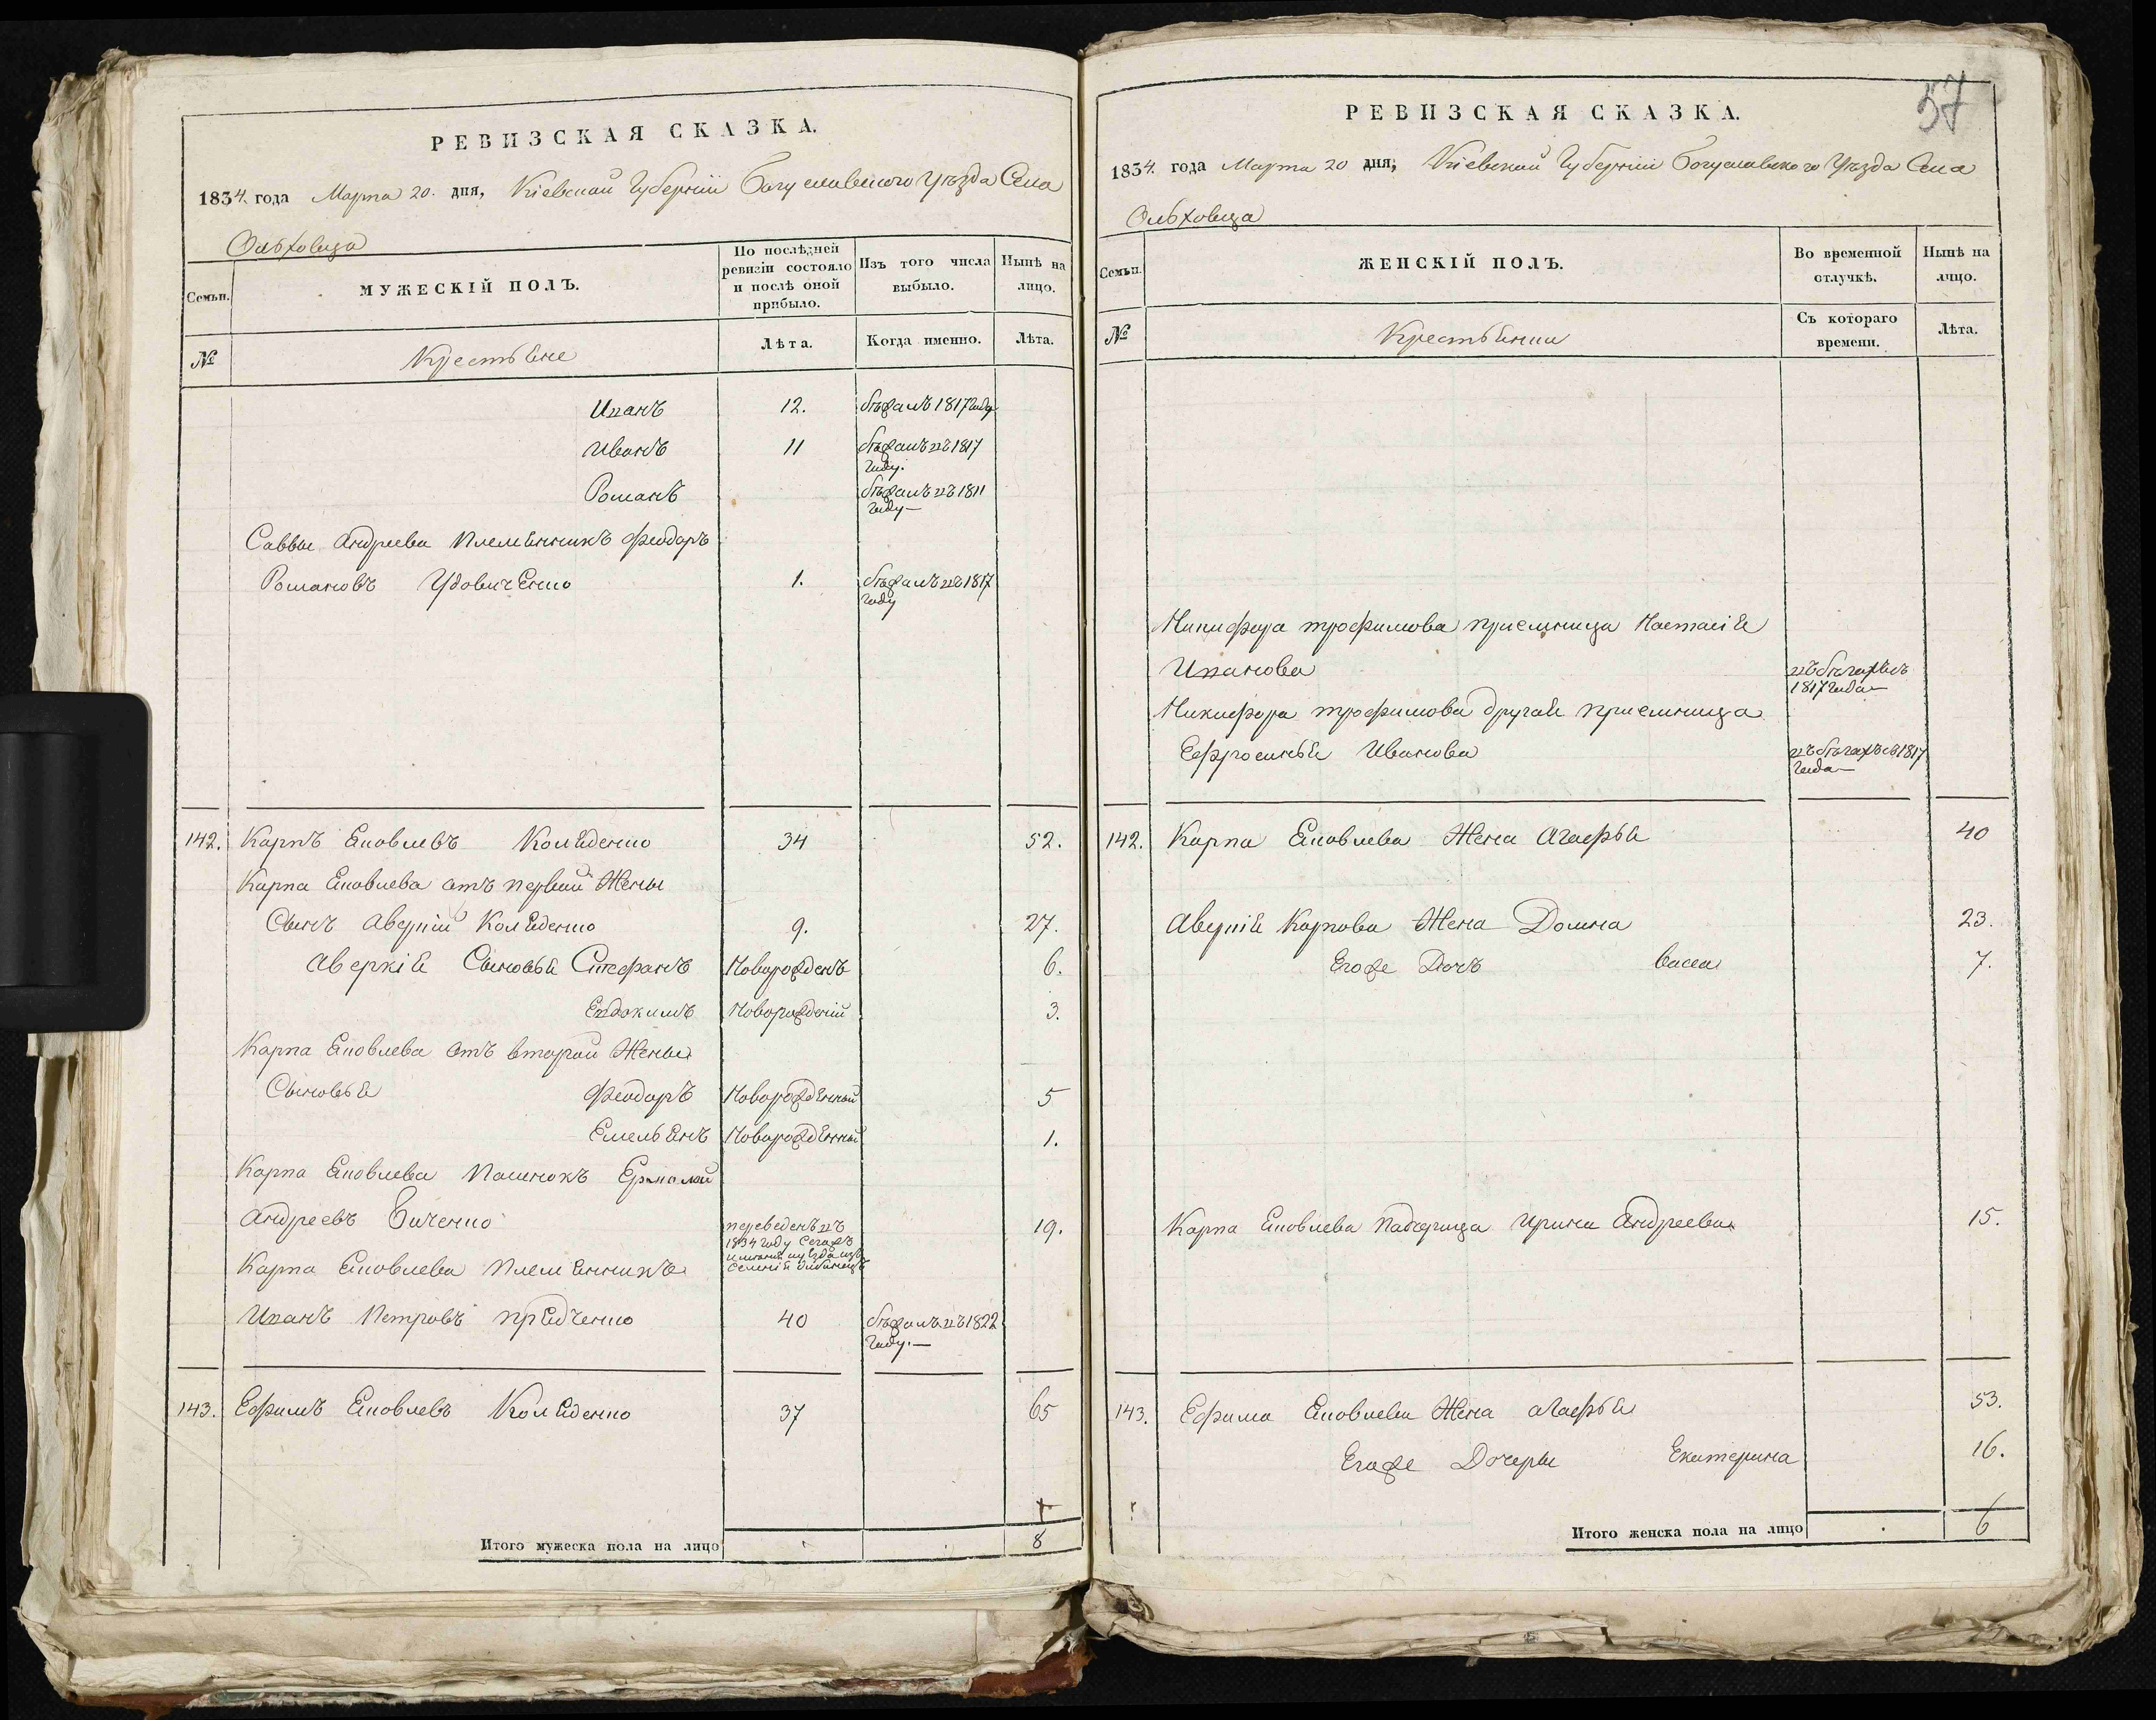 РЕВИЗСКАЯ СКАЗКА.
1834. года Марта 20. дня, Кіевской Губерніи Богуславского Уѣзда Села
Ольховца
Семьи.
МУЖЕСКІЙ ПОЛЪ.
По послѣдней ревизіи состояло и послѣ оной прибыло.
Изъ того числа выбыло.
Нынѣ на лицо.
№
Крестьяне
Лѣта.
Когда именно.
Лѣта.
Иванъ 12. бѣжалъ 1817 году
Иванъ 11 бѣжалъ въ 1817
году.
Романъ бѣжалъ въ 1811
году
Саввы Андреева Племянникъ Феодоръ
Романовъ Удовиченко 1. бѣжалъ въ 1817
году
142. Карпъ Яковлевъ Коляденко 34 52.
Карпа Яковлева отъ первой Жены
Сынъ Аверкій Коляденко 9. 27.
Аверкія Сыновья Стефанъ Новорожденъ 6.
Евдокимъ Новорожденій 3.
Карпа Яковлева отъ второй Жены
Сыновья Феодоръ Новорожденный 5
Емельянъ Новорожденный 1.
Карпа Яковлева Пасинокъ Ермолай
Андреевъ Биченко переведенъ въ 19.
1834 году
Карпа Яковлева Племянникъ
Иванъ Петровъ Прядченко 40 бѣжалъ въ 1822
году.
143. Ефимъ Яковлевъ Коляденко 37 65
Итого мужеска пола на лицо 8
57
РЕВИЗСКАЯ СКАЗКА.
1834. года Марта 20 дня, Кіевской Губерніи Богуславского Уѣзда Села
Ольховца
Семьи.
ЖЕНСКІЙ ПОЛЪ.
Во временной отлучкѣ.
Нынѣ на лицо.
№
Крестьянки
Съ котораго времени.
Лѣта.
Никифора Трофимова приемница Настасія
Иванова въ бѣгахъ съ
1817 года
Никифора Трофимова другая приемница
Ефросинья Иванова въ бѣгахъ съ 1817
года
142. Карпа Яковлева Жена Агафья 40
Аверкія Карпова Жена Домна 23.
Егоже Дочь Васса 7.
Карпа Яковлева Падчерица Ирина Андреева 15.
143. Ефима Яковлева Жена Агафья 53.
Егоже Дочеры Екатерина 16.
Итого женска пола на лицо 6